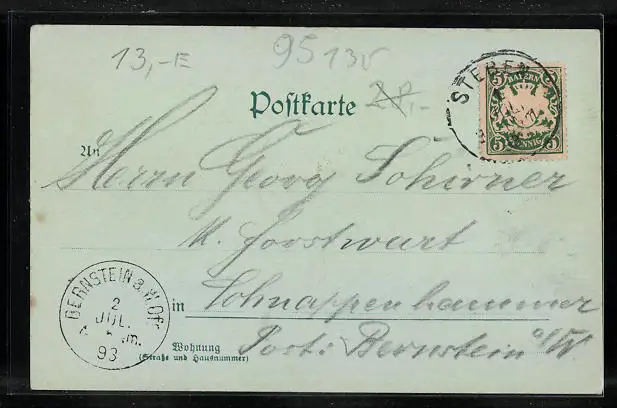 13,-E 95130
Postkarte
2,-
STEBEN
5 BAYERN 5
5 PFENNIG 5
An
Herrn Georg Schirner
k. Forstwart
in Schnappenhammer
Post: Bernstein a/W
Wohnung
(Straße und Hausnummer)
BERNSTEIN a.W.
2
JUL.
93